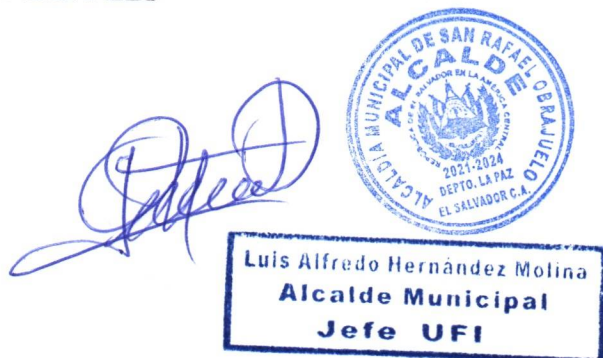 ALCALDIA MUNICIPAL DE SAN RAFAEL OBRAJUELO
ALCALDE
REPUBLICA DE EL SALVADOR EN LA AMERICA CENTRAL
2021-2024
DEPTO. LA PAZ
EL SALVADOR C.A.
Luis Alfredo Hernández Molina
Alcalde Municipal
Jefe UFI